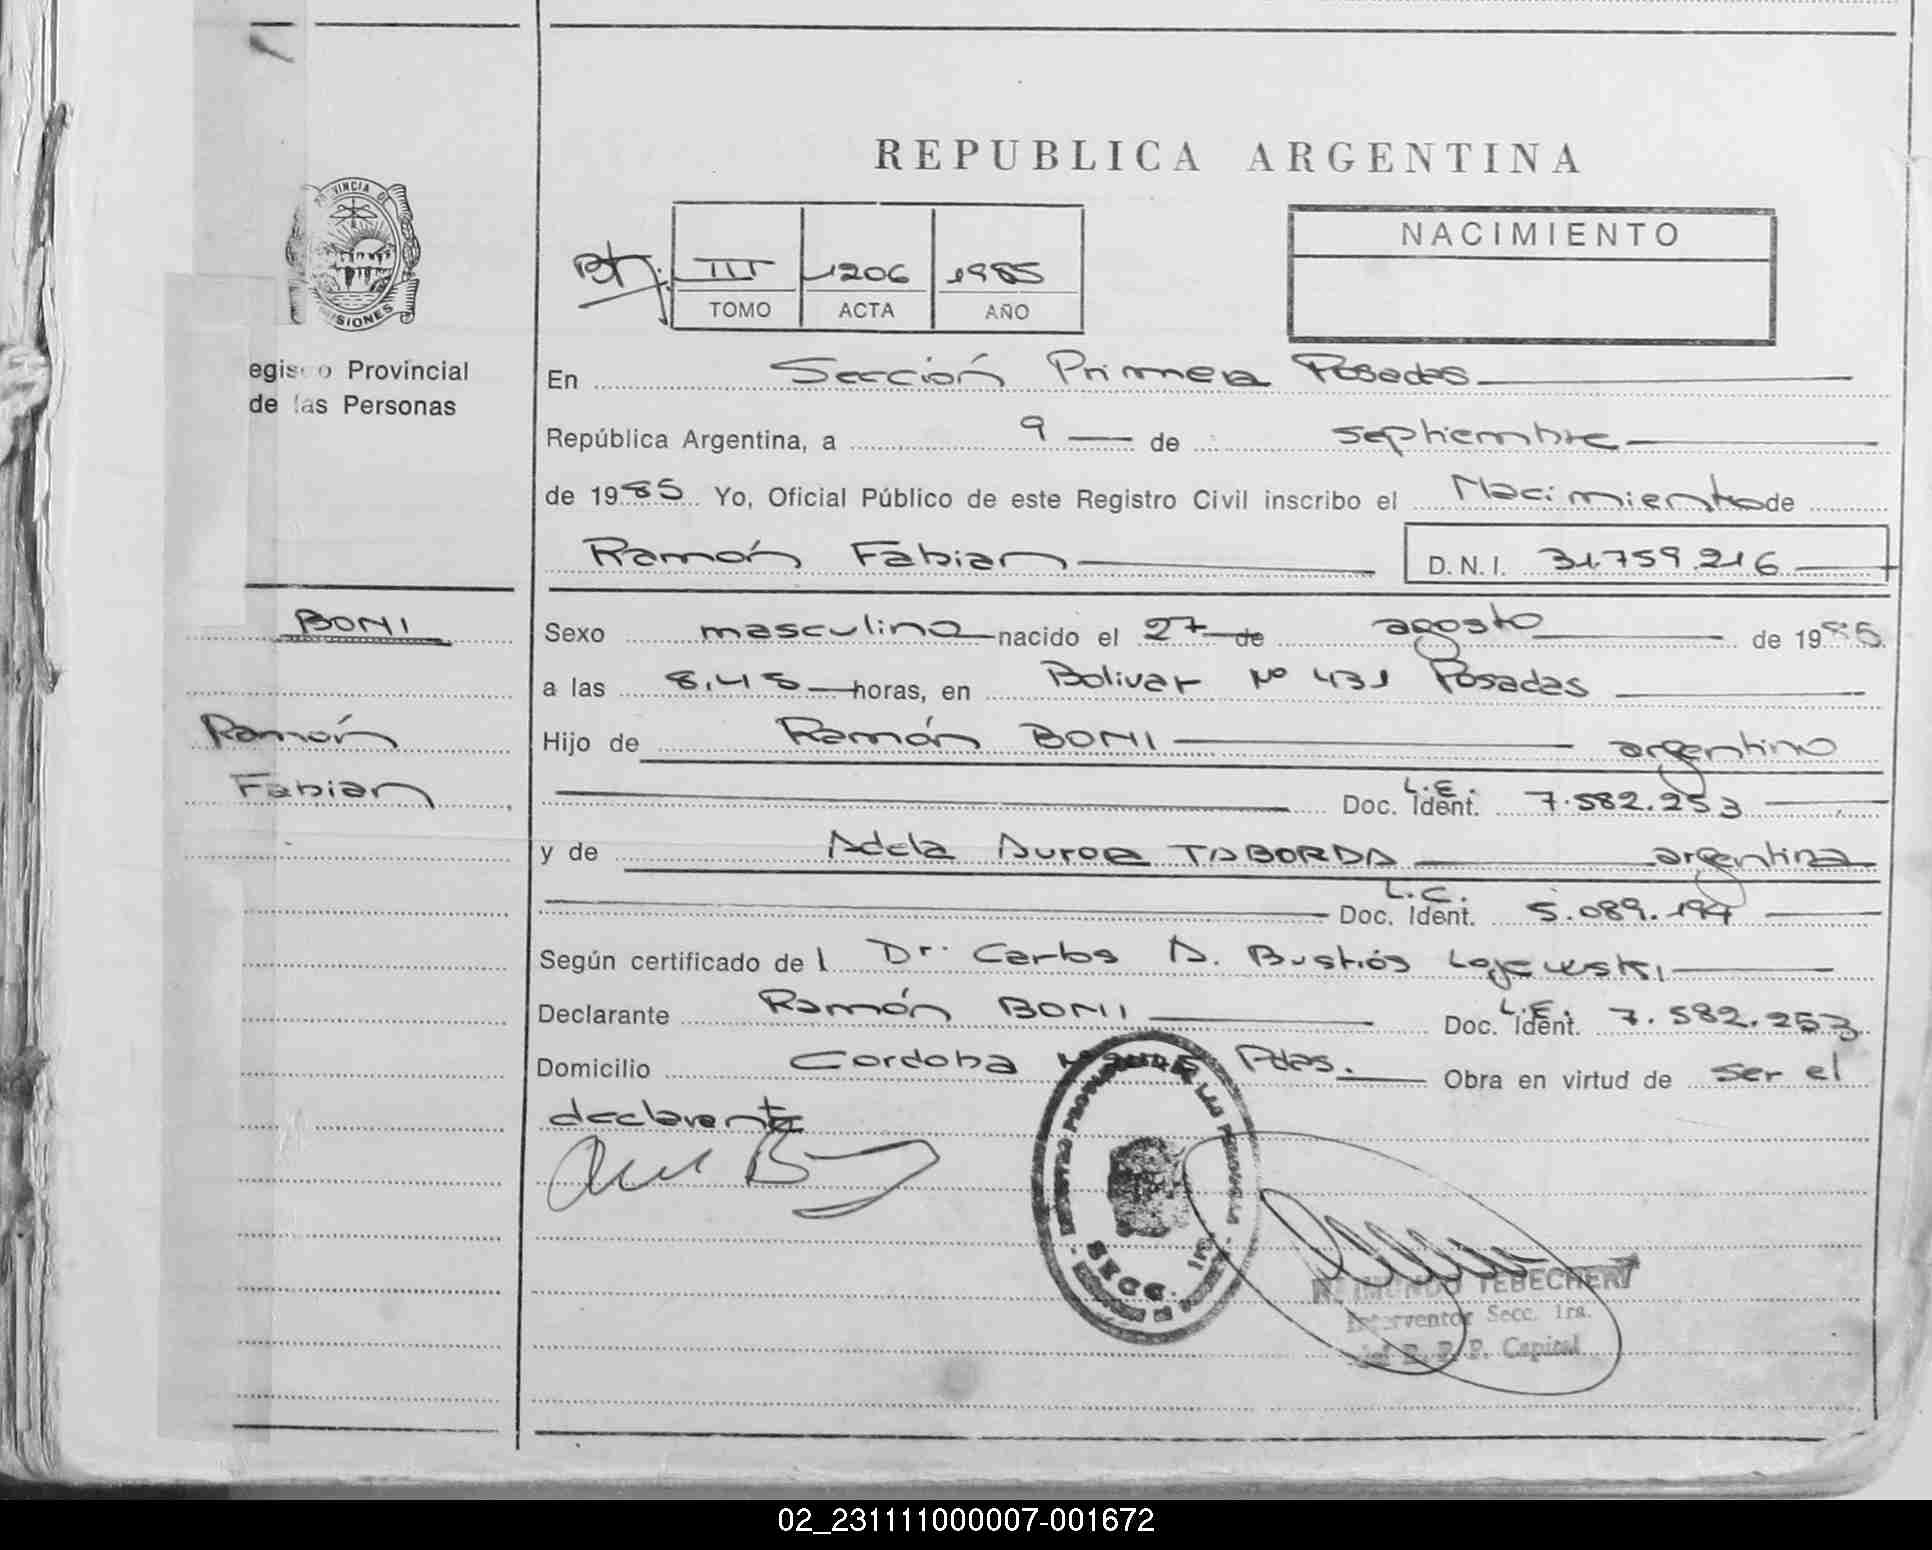 REPUBLICA ARGENTINA
PROVINCIA DE
MISIONES
NACIMIENTO
III 1206 1985
TOMO ACTA AÑO
egis o Provincial
de las Personas
En Sección Primera Posadas
República Argentina, a 9 de septiembre
de 1985 Yo, Oficial Público de este Registro Civil inscribo el Nacimiento de
Ramón Fabian D.N.I. 31.759.216
BONI
Ramón
Fabian
Sexo masculino nacido el 27 de agosto de 1985.
a las 8,45 horas, en Bolivar Nº 431 Posadas
Hijo de Ramón BONI argentino
L.E.
Doc. Ident. 7.582.253
y de Adela Aurora TABORDA argentina
L.C.
Doc. Ident. 5.089.194
Según certificado del Dr. Carlos A. Bustios
Declarante Ramón BONI Doc. L.E. Ident. 7.582.253
Domicilio Cordoba Pdas. Obra en virtud de ser el
declarante
SECC. 1ra
TEBECHERY
Interventor Secc. 1ra.
del R. P. P. Capital
02_231111000007-001672